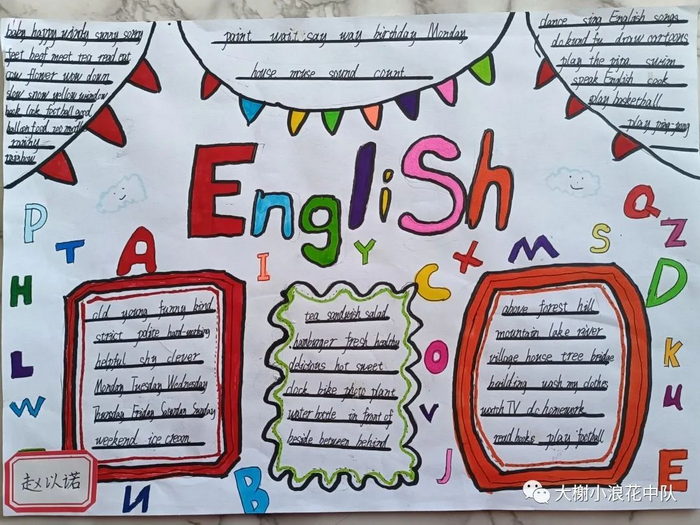 baby happy windy sunny sorry
feet beef meet tea read eat
cow flower wow down
slow snow yellow window
book look football good
balloon food zoo noodle
rainy
rainbow
paint wait say way birthday Monday
house mouse sound count
dance sing English songs
do kung fu draw cartoons
play the pipa swim
speak English cook
play basketball
play ping-pong
English
P
T
A
I
Y
C
X
M
S
Q
Z
H
D
L
W
O
V
J
K
U
E
N
B
old young funny kind
strict polite hard-working
helpful shy clever
Monday Tuesday Wednesday
Thursday Friday Saturday Sunday
weekend ice cream
tea sandwich salad
hamburger fresh healthy
delicious hot sweet
clock bike photo plant
water bottle in front of
beside between behind
above forest hill
mountain lake river
village house tree bridge
building wash my clothes
watch TV do homework
read books play football
赵以诺
大榭小浪花中队